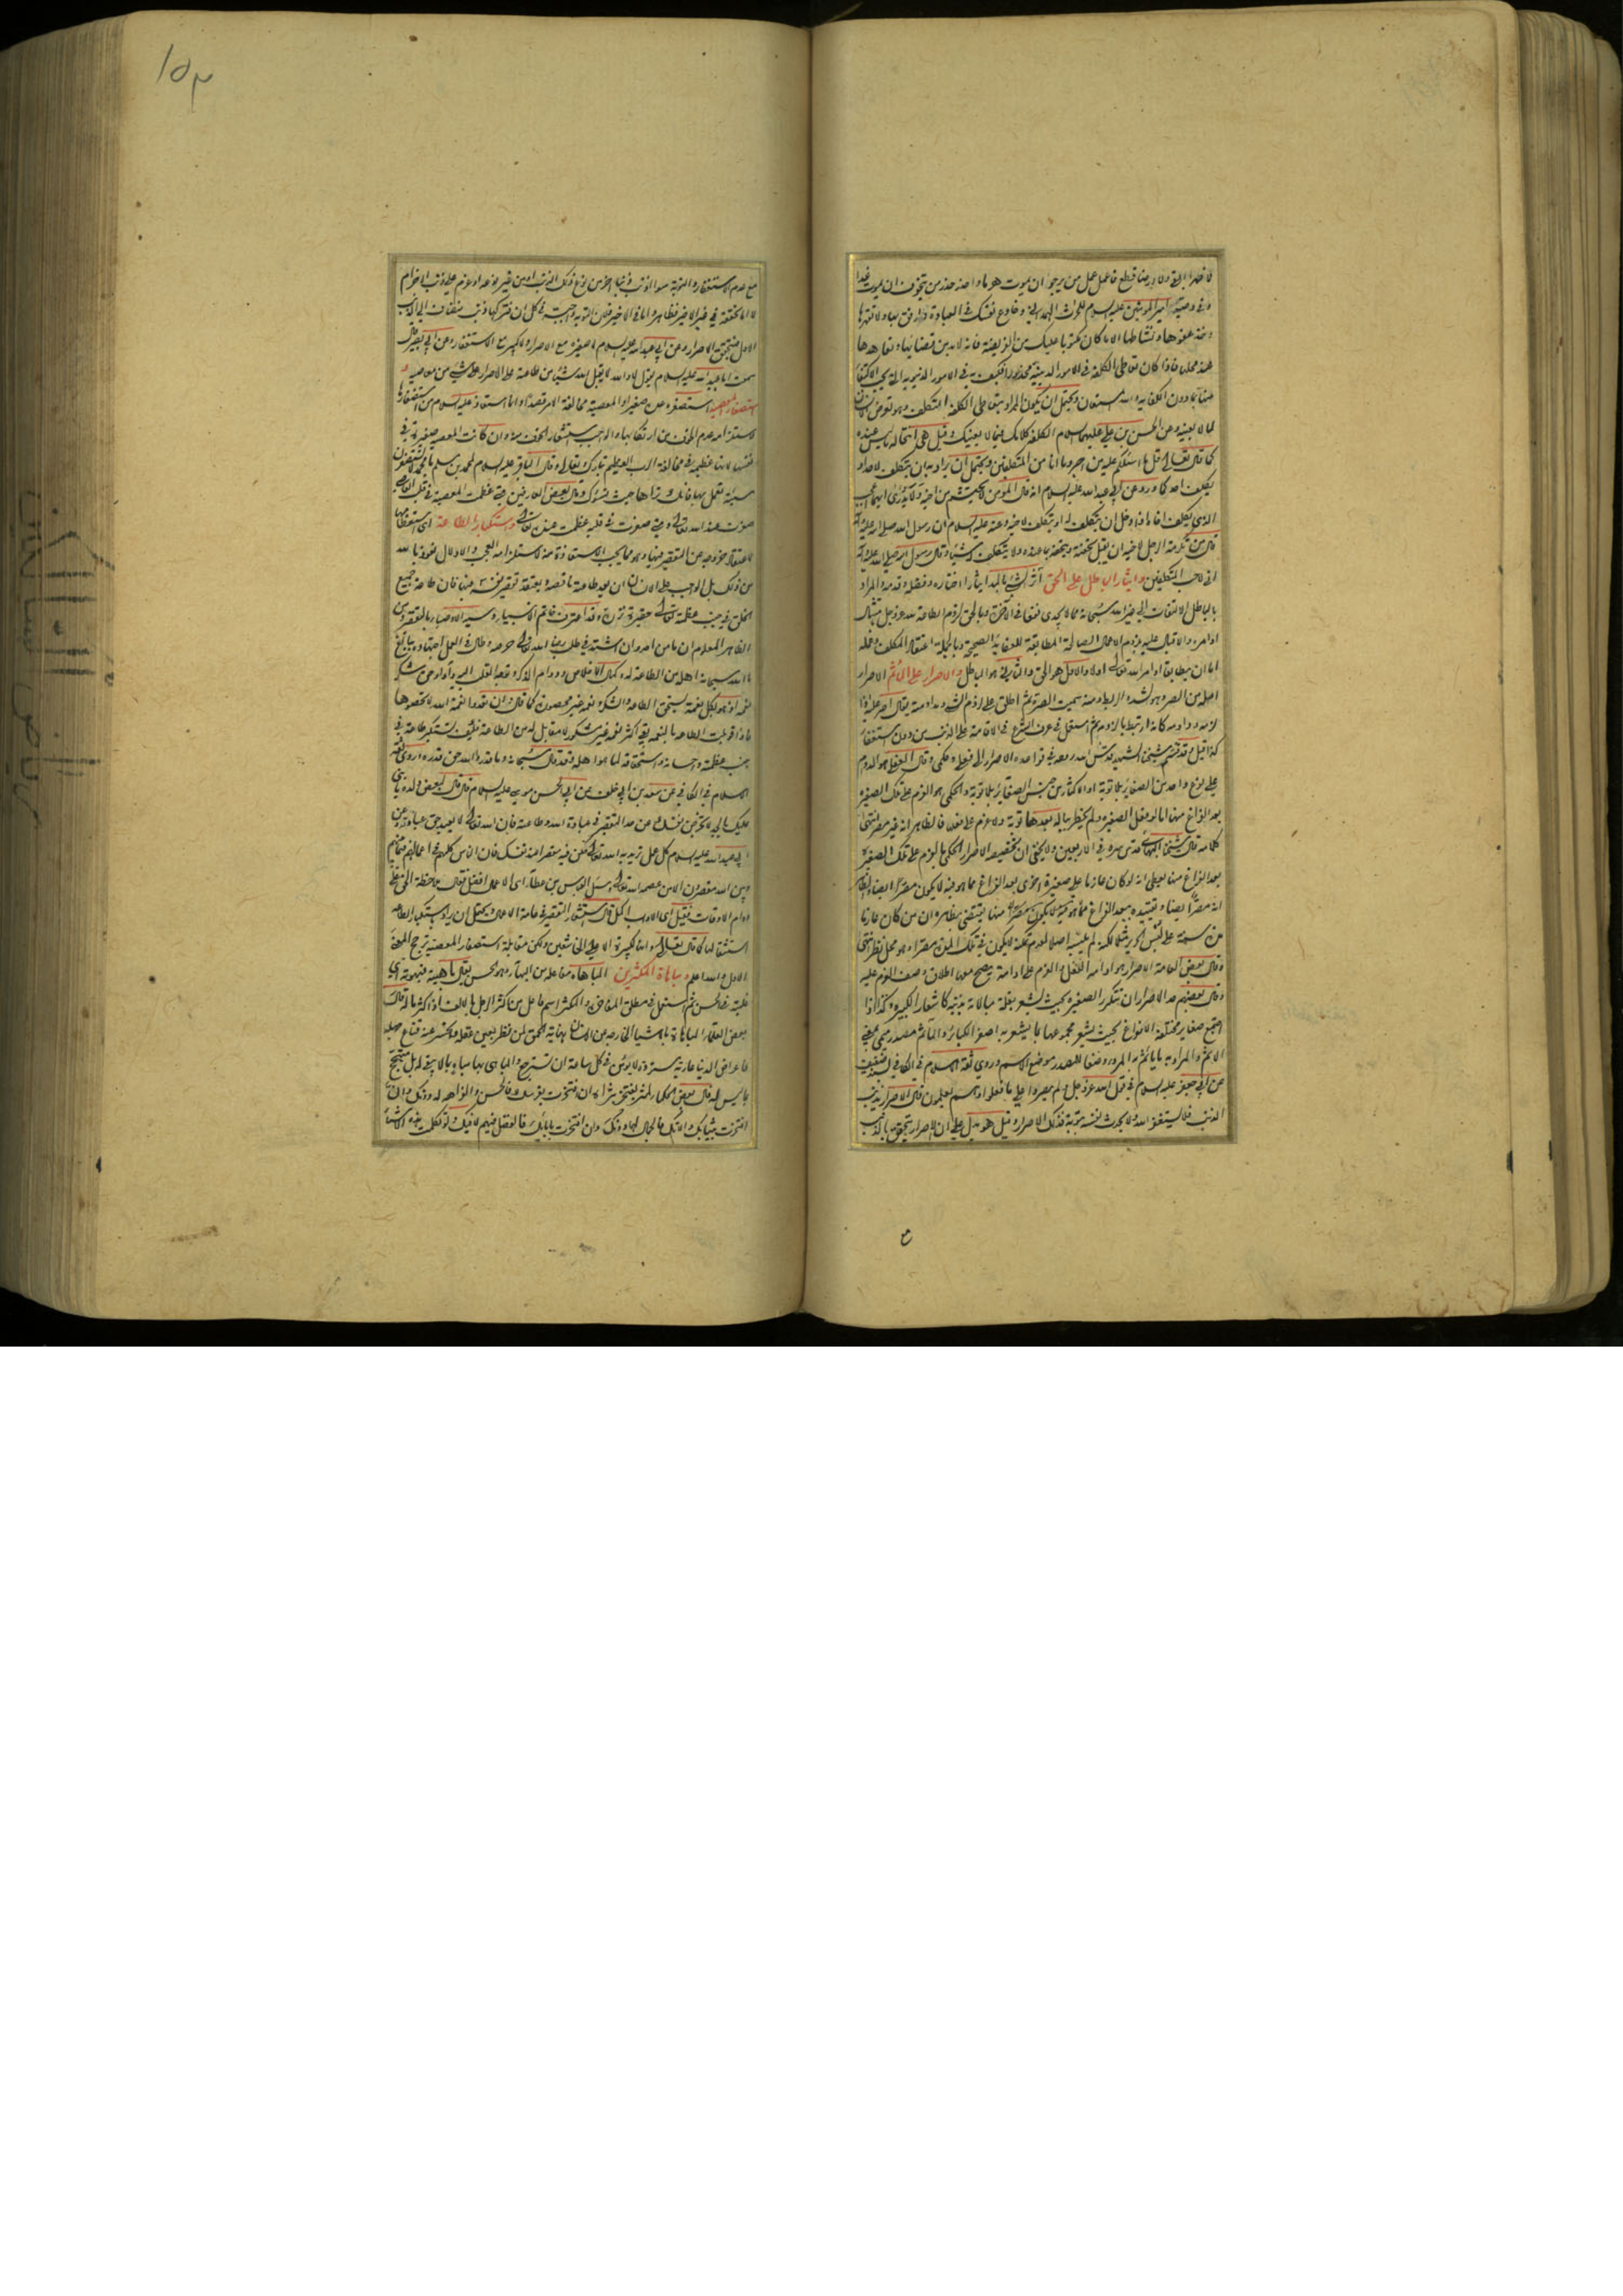 فاعمل عمل من يرجو ان يموت هرما واحذر حذر من يتخوف ان يموت غدا
وفي وصية امير المؤمنين عليه السلام للحارث الهمداني وخادع نفسك في العبادة وارفق بها ولا تقهرها
وخذ عفوها ونشاطها الا ما كان مكتوبا عليك من الفريضة فانه لا بد من قضائها وتعاهدها
عند محلها فاذا كان تعاطي الكلفة في الامور الدينية محذورا فكيف به في الامور الدنيوية
ويحتمل ان يكون المراد بتعاطي الكلفة التكلف وهو تعرض الانسان
لما لا يعنيه وعن الحسن بن علي عليهما السلام الكلفة كلامك فيما لا يعنيك وقيل هي انتحاله ما ليس عنده
كما قال تعالى قل ما اسئلكم عليه من اجر وما انا من المتكلفين ويحتمل ان يراد به ان يتكلف لاحد او
يكلف احدا كما ورد عن ابي عبد الله عليه السلام انه قال المؤمن لا يحتشم من اخيه ولا يدرى ايهما اعجب
الذي يكلف اخاه اذا دخل ان يتكلف له او المتكلف لاخيه وعنه عليه السلام ان رسول الله صلى الله عليه وآله
قال من تكرمة الرجل لاخيه ان يقبل تحفته ويتحفه بما عنده ولا يتكلف له شيئا وقال رسول الله صلى الله عليه وآله
اني لا احب المتكلفين وايثار الباطل على الحق آثر الشئ بالمد ايثارا اختاره وفضله وقدمه والمراد
بالباطل الالتفات الى غير الله سبحانه مما لا يجدي نفعا في الآخرة وبالحق لزوم الطاعة لله عز وجل بامتثال
اوامره والاقبال عليه ولزوم الاعمال الصالحة المطابقة للعقايد الصحيحة وبالجملة اعتقاد المكلف وعمله
اما ان يطابق اوامر الله تعالى اولا والاول هو الحق والثاني هو الباطل والاصرار على المأثم الاصرار
اصله من الصر وهو الشد والربط ومنه سميت الصرة ثم اطلق على لزوم الشئ ومداومته يقال اصر عليه اذا
لزمه وداومه ثم استعمل في عرف الشرع في الاقامة على الذنب من دون استغفار
كذا قيل وقد قسم شيخنا الشهيد قدس الله روحه في قواعده الاصرار الى فعلي وحكمي وقال الفعلي هو الدوام
على نوع واحد من الصغائر بلا توبة او الاكثار من جنس الصغائر بلا توبة والحكمي هو العزم على تلك الصغيرة
بعد الفراغ منها اما لو فعل الصغيرة ولم يخطر بباله بعدها توبة ولا عزم على فعلها فالظاهر انه غير مصر انتهى
كلامه قال شيخنا البهائي قدس سره في الاربعين ولا يخفى ان تخصيصه الاصرار الحكمي بالعزم على تلك الصغيرة
بعد الفراغ منها يعطي انه لو كان عازما على صغيرة اخرى بعد الفراغ مما هو فيه لا يكون مصرا والظاهر
انه مصر ايضا وتقييده ببعد الفراغ منها يقتضي بظاهره ان من كان عازما
مدة سنة على لبس الحرير مثلا لكنه لم يلبسه اصلا لعدم تمكنه لا يكون في تلك المدة مصرا وهو محل نظر انتهى
وقال بعض العامة الاصرار هو ادامة الفعل والعزم على ادامته يصح معها اطلاق وصف العزم عليه
وقال بعضهم حد الاصرار ان تتكرر الصغيرة بحيث يشعر بقلة مبالاته بذنبه كاشعار الكبيرة وكذا اذا
اجتمع صغاير مختلفة الانواع بحيث يشعر مجموعها بما يشعر به اصغر الكبائر والمأثم مصدر ميمي بمعنى
الاثم والمراد به ما يأثم به المرء وضعا للمصدر موضع الاسم وروى ثقة الاسلام في الكافي بسند ضعيف
عن ابي جعفر عليه السلام في قول الله عز وجل ولم يصروا على ما فعلوا وهم يعلمون قال الاصرار ان يذنب
الذنب فلا يستغفر الله ولا يحدث نفسه بتوبة فذلك الاصرار قيل هو يدل على ان الاصرار يتحقق بالذنب
ع
١٥٣
مع عدم الاستغفار والتوبة سواء اذنب ذنبا آخر من نوع ذلك الذنب او من غير نوعه او عزم على ذنب آخر ام
لا
الاول فيتحقق الاصرار وعن ابي عبد الله عليه السلام لا صغيرة مع الاصرار ولا كبيرة مع الاستغفار وعن ابي بصير قال
سمعت ابا عبد الله عليه السلام يقول لا والله لا يقبل الله شيئا من طاعته على الاصرار على شئ من معاصيه و
استصغار المعصية استصغره عده صغيرا والمعصية مخالفة الامر قصدا وانما استعاذ عليه السلام من استصغارها
لاستلزامه عدم الخوف من ارتكابها والواجب استشعار الخوف منه وان كانت المعصية صغيرة في
نفسها لانها عظيمة في مخالفة الرب العظيم تبارك وتعالى وقال الباقر عليه السلام لمحمد بن مسلم لا تستصغرن
سيئة تعمل بها فانك تراها حيث تسوءك وقال بعض العارفين متى عظمت المعصية في قلب العاصي
صغرت عند الله تعالى ومتى صغرت في قلبه عظمت عند الله تعالى واستكبار الطاعة اي استعظامها
لاعتقاد خروجه عن التقصير فيها وهو مما يجب الاستعاذة منه لاستلزامه العجب والادلال نعوذ بالله
من ذلك بل الواجب على الانسان ان يعد طاعته ناقصة ويعتقد تقصير نفسه فيها فان طاعة جميع
الخلق في جنب عظمة الله تعالى حقيرة نزرة وقد اعترف خاتم الانبياء وسيد الاوصياء بالتقصير ومن
الظاهر المعلوم ان ما من احد وان اشتد في طلب رضا الله تعالى حرصه وطال في العمل اجتهاده ببالغ
ما الله سبحانه اهله من الطاعة له وكمال الاخلاص ودوام الذكر وتوجه القلب اليه واداء حق شكر
نعمه اذ هو بكل نعمة يستحق الطاعة والشكر ونعمه غير محصورة كما قال وان تعدوا نعمة الله لا تحصوها
فاذا قوبلت الطاعة بالنعمة بقي اكثر نعمه غير مشكور لا مقابل له من الطاعة فكيف تستكبر طاعة في
جنب عظمته واحسانه واستحقاقه لما هو اهله وقد قال سبحانه وما قدروا الله حق قدره وروى ثقة
الاسلام في الكافي عن سعد بن ابي خلف عن ابي الحسن موسى عليه السلام قال قال لبعض ولده يا بني
عليك بالجد لا تخرجن نفسك عن حد التقصير في عبادة الله وطاعته فان الله تعالى لا يعبد حق عبادته وعن
ابي عبد الله عليه السلام كل عمل تريد به الله تعالى فكن فيه مقصرا عند نفسك فان الناس كلهم في اعمالهم فيما بينهم
وبين الله مقصرون الا من عصمه الله تعالى وسئل ابو العباس بن عطا اي الاعمال افضل فقال ملاحظة الحق على
دوام الاوقات فقيل اي الاداب اكمل قال استشعار التقصير في عامة الاعمال ويحتمل ان يراد باستكبار الطاعة
استثقالها كما قال تعالى وانها لكبيرة الا على الخاشعين ولكن مقابلة استصغار المعصية ترجح المعنى
الاول والله اعلم ومباهاة المكثرين المباهاة مفاعلة من البهاء وهو الحسن يقال باهيته فبهوته اي
غلبته في الحسن ثم استعمل في مطلق المفاخرة والمكثر اسم فاعل من اكثر الرجل بالالف اذا كثر ماله قال
بعض العقلاء المباهاة بالاشياء الخارجة عن الانسان نهاية الحمق لمن نظر بعين عقله وانحسر عنه قناع جهله
فاعراض الدنيا عارية مستردة لا يؤمن في كل ساعة ان تسترجع والمباهي بها مباه بما لا يبقى له بل متبجح
بما ليس له قال بعض الحكماء لمثر يفتخر بثرائه ان افتخرت بفرسك فالحسن والفراهة له دونك وان
افتخرت بثيابك والاتك فالجمال لها دونك وان افتخرت بابائك فالفضل فيهم لا فيك ولو تكلمت هذه الاشياء